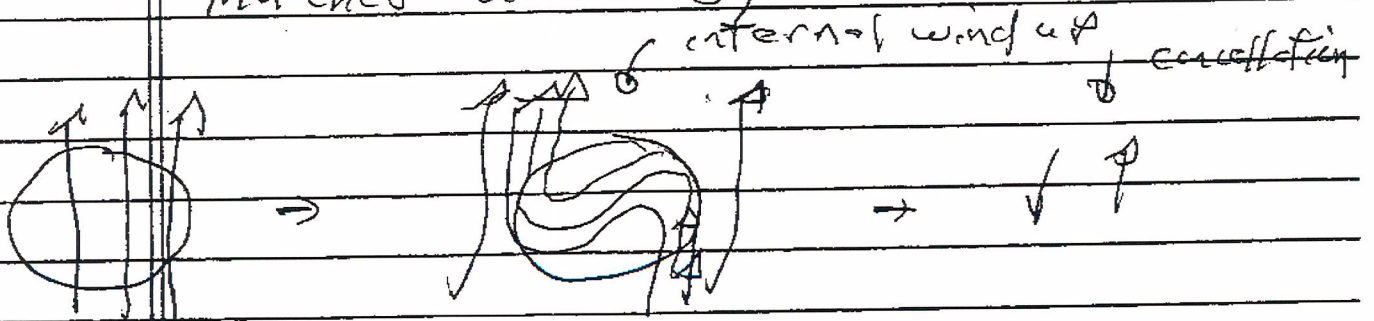 internal wind up
cancellation